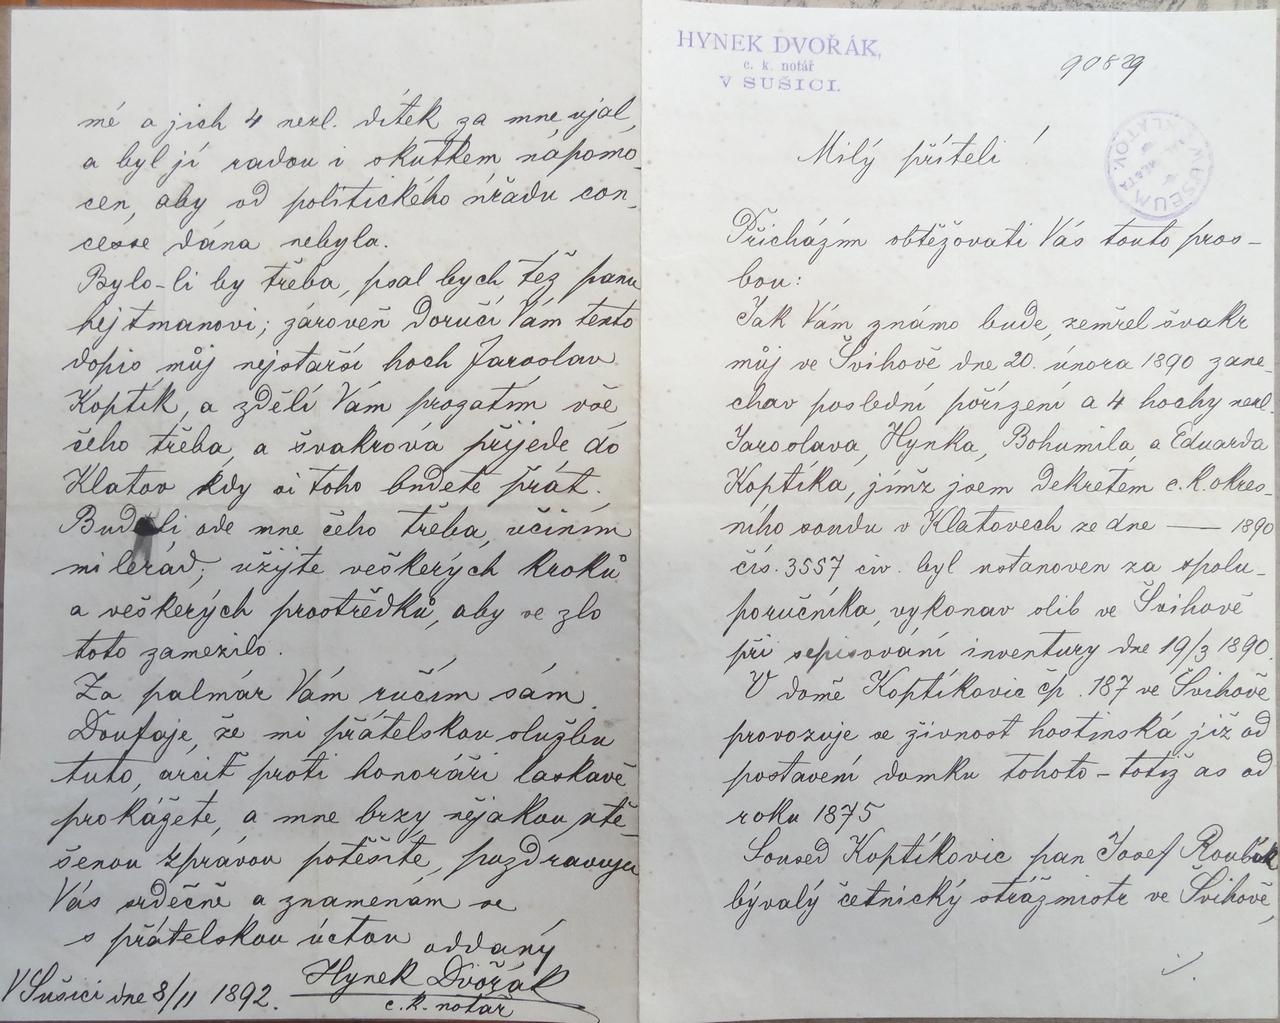 HYNEK DVOŘÁK,
c. k. notář
V SUŠICI.
90829
MUSEUM V KLATOV.
Milý příteli!
Přicházím obtěžovati Vás touto pros-
bou:
Jak Vám známo bude, zemřel švakr
můj ve Švihově dne 20. února 1890 zane-
chav poslední pořízení a 4 hochy nezl.
Jaroslava, Hynka, Bohumila, a Eduarda
Koptíka, jimž jsem dekretem c. k. okres-
ního soudu v Klatovech ze dne — 1890
čís. 3557 civ. byl ustanoven za spolu-
poručníka, vykonav slib ve Švihově
při sepisování inventury dne 19/3 1890.
V domě Koptíkovic čp. 187 ve Švihově
provozuje se živnost hostinská již od
postavení domku tohoto – totiž as od
roku 1875
Soused Koptíkovic pan Josef Roubík
bývalý četnický strážmistr ve Švihově,
mé a jich 4 nezl. dítek za mne ujal,
a byl jí radou i skutkem nápomo-
cen, aby od politického úřadu con-
cesse dána nebyla.
Bylo-li by třeba, psal bych též panu
hejtmanovi; zároveň doručí Vám tento
dopis můj nejstarší hoch Jaroslav
Koptík, a zdělí Vám prozatím vše
čeho třeba, a švakrová přijede do
Klatov kdy si toho budete přát.
Bude-li ode mne čeho třeba, učiním
milerád; užijte veškerých kroků
a veškerých prostředků, aby se zlo
toto zamezilo.
Za palmár Vám ručím sám.
Doufaje, že mi přátelskou službu
tuto, arciť proti honoráři laskavě
prokážete, a mne brzy nějakou utě-
šenou zprávou potěšíte, pozdravuju
Vás srdečně a znamenám se
s přátelskou úctou oddaný
Hynek Dvořák
c. k. notář
V Sušici dne 8/11 1892.